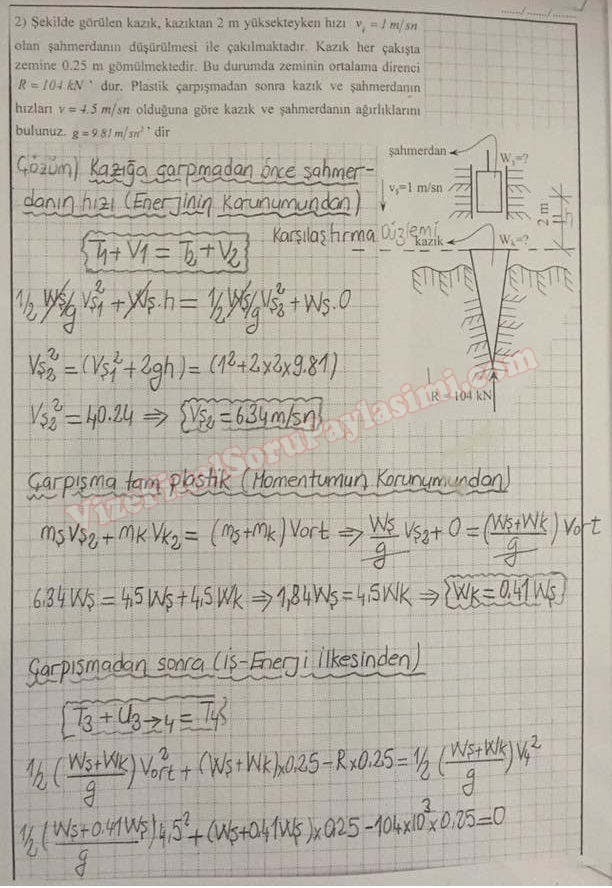 2) Şekilde görülen kazık, kazıktan 2 m yüksekteyken hızı v_ş = 1 m/sn
olan şahmerdanın düşürülmesi ile çakılmaktadır. Kazık her çakışta
zemine 0.25 m gömülmektedir. Bu durumda zeminin ortalama direnci
R = 104 kN ' dur. Plastik çarpışmadan sonra kazık ve şahmerdanın
hızları v = 4.5 m/sn olduğuna göre kazık ve şahmerdanın ağırlıklarını
bulunuz. g = 9.81 m/sn²' dir
şahmerdan
W_ş=?
v_ş=1 m/sn
2 m
h
kazık
W_k=?
R = 104 kN
Çözüm) Kazığa çarpmadan önce şahmer-
danın hızı (Enerjinin Korunumundan)
Karşılaştırma Düzlemi
{T1 + V1 = T2 + V2}
1/2 Wş/g Vş1² + Wş.h = 1/2 Wş/g Vş2² + Wş.0
Vş2² = (Vş1² + 2gh) = (1² + 2x2x9.81)
Vş2² = 40.24 ⇒ {Vş2 = 6.34 m/sn}
Çarpışma tam plastik (Momentumun Korunumundan)
mş Vş2 + mk Vk2 = (mş + mk) Vort ⇒ Wş/g Vş2 + 0 = (Wş+Wk/g) Vort
6.34 Wş = 4,5 Wş + 4,5 Wk ⇒ 1,84 Wş = 4,5 Wk ⇒ {Wk = 0.41 Wş}
Çarpışmadan sonra (İş-Enerji İlkesinden)
{T3 + U3→4 = T4}
1/2 (Wş+Wk/g) Vort² + (Wş+Wk)x0.25 - Rx0.25 = 1/2 (Wş+Wk/g) V4²
1/2 (Wş+0.41Wş/g) 4,5² + (Wş+0.41Wş)x0.25 - 104x10³x0.25 = 0
VizeFinalSoruPaylasimi.com